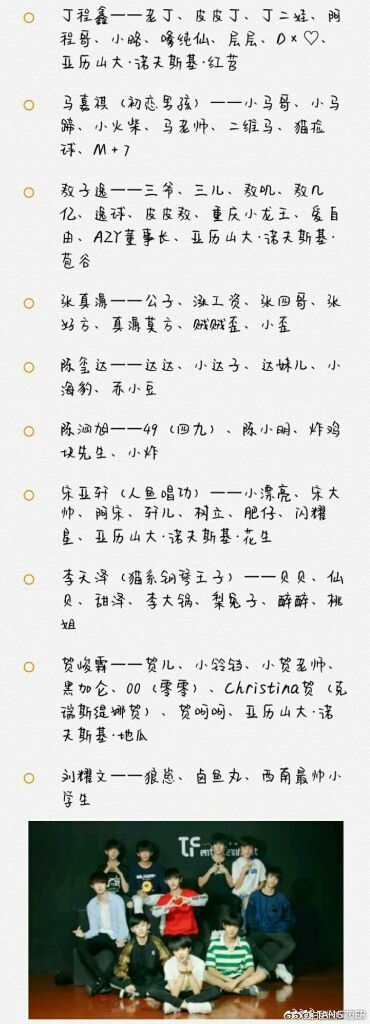 丁程鑫——老丁、皮皮丁、丁二娃、阿
程哥、小略、嗓纯仙、层层、D×♡、
亚历山大·诺夫斯基·红苕
马嘉祺（初恋男孩）——小马哥、小马
蹄、小火柴、马老师、二维马、猫捡
球、M+7
敖子逸——三爷、三儿、敖叽、敖几
亿、逸球、皮皮敖、重庆小龙王、爱自
由、AZY董事长、亚历山大·诺夫斯基·
苞谷
张真源——公子、涨工资、张四哥、张
好方、真源莫方、贼贼歪、小歪
陈玺达——达达、小达子、达妹儿、小
海豹、赤小豆
陈泗旭——49（四九）、陈小明、炸鸡
块先生、小炸
宋亚轩（人鱼唱功）——小漂亮、宋大
帅、阿宋、轩儿、树立、肥仔、闪耀
星、亚历山大·诺夫斯基·花生
李天泽（猫系钢琴王子）——贝贝、仙
贝、甜泽、李大锅、梨兔子、醉醉、桃
姐
贺峻霖——贺儿、小铃铛、小贺老师、
黑加仑、00（零零）、Christina贺（克
瑞斯缇娜贺）、贺呵呵、亚历山大·诺
夫斯基·地瓜
刘耀文——狼崽、卤鱼丸、西南最帅小
学生
TF
entertainment